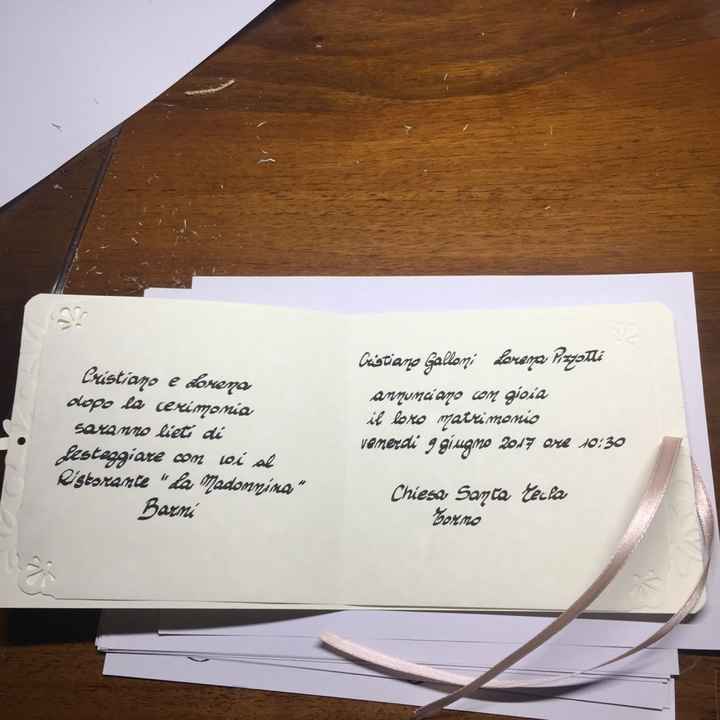 Cristiano e Lorena
dopo la cerimonia
saranno lieti di
festeggiare con voi al
Ristorante "La Madonnina"
Barni
Cristiano Galloni Lorena Pizzotti
annunciano con gioia
il loro matrimonio
venerdì 9 giugno 2017 ore 10:30
Chiesa Santa Tecla
Torno